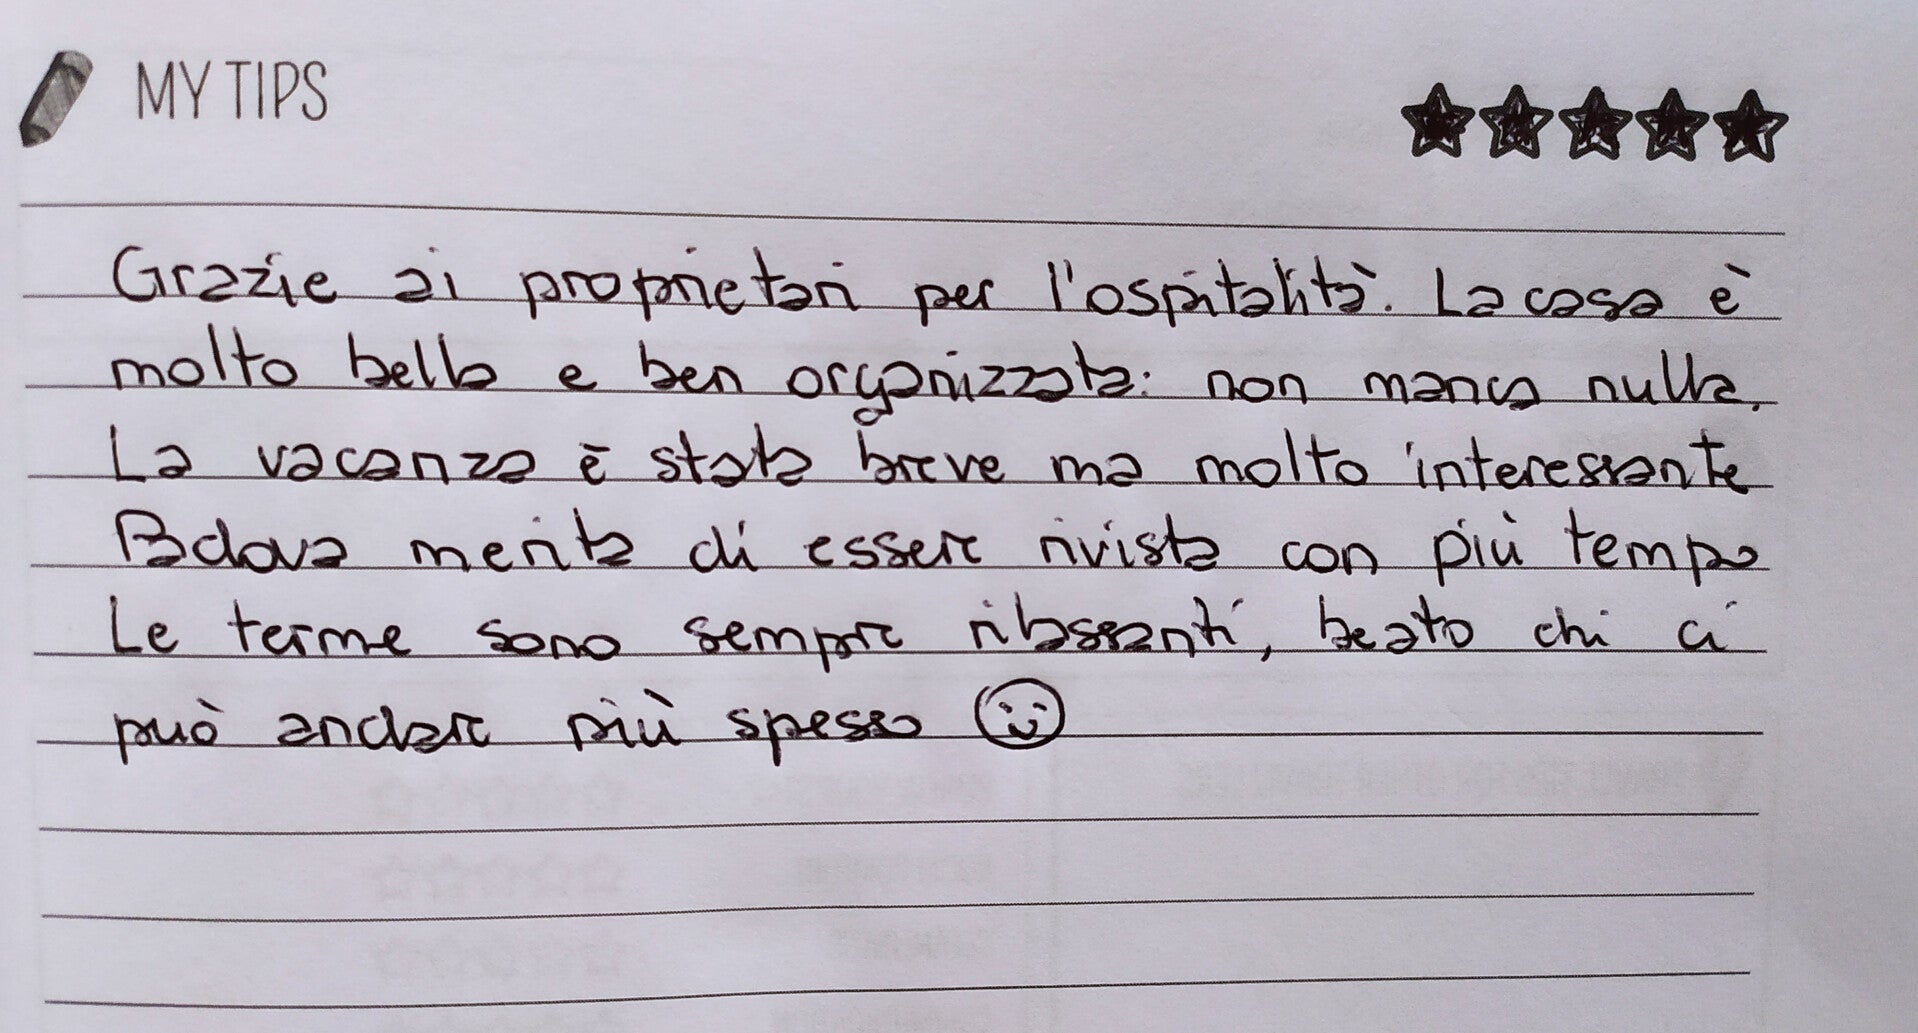 MY TIPS
Grazie ai proprietari per l'ospitalità. La casa è
molto bella e ben organizzata: non manca nulla.
La vacanza è stata breve ma molto interessante
Padova merita di essere rivista con più tempo
Le terme sono sempre rilassanti, beato chi ci
può andare più spesso